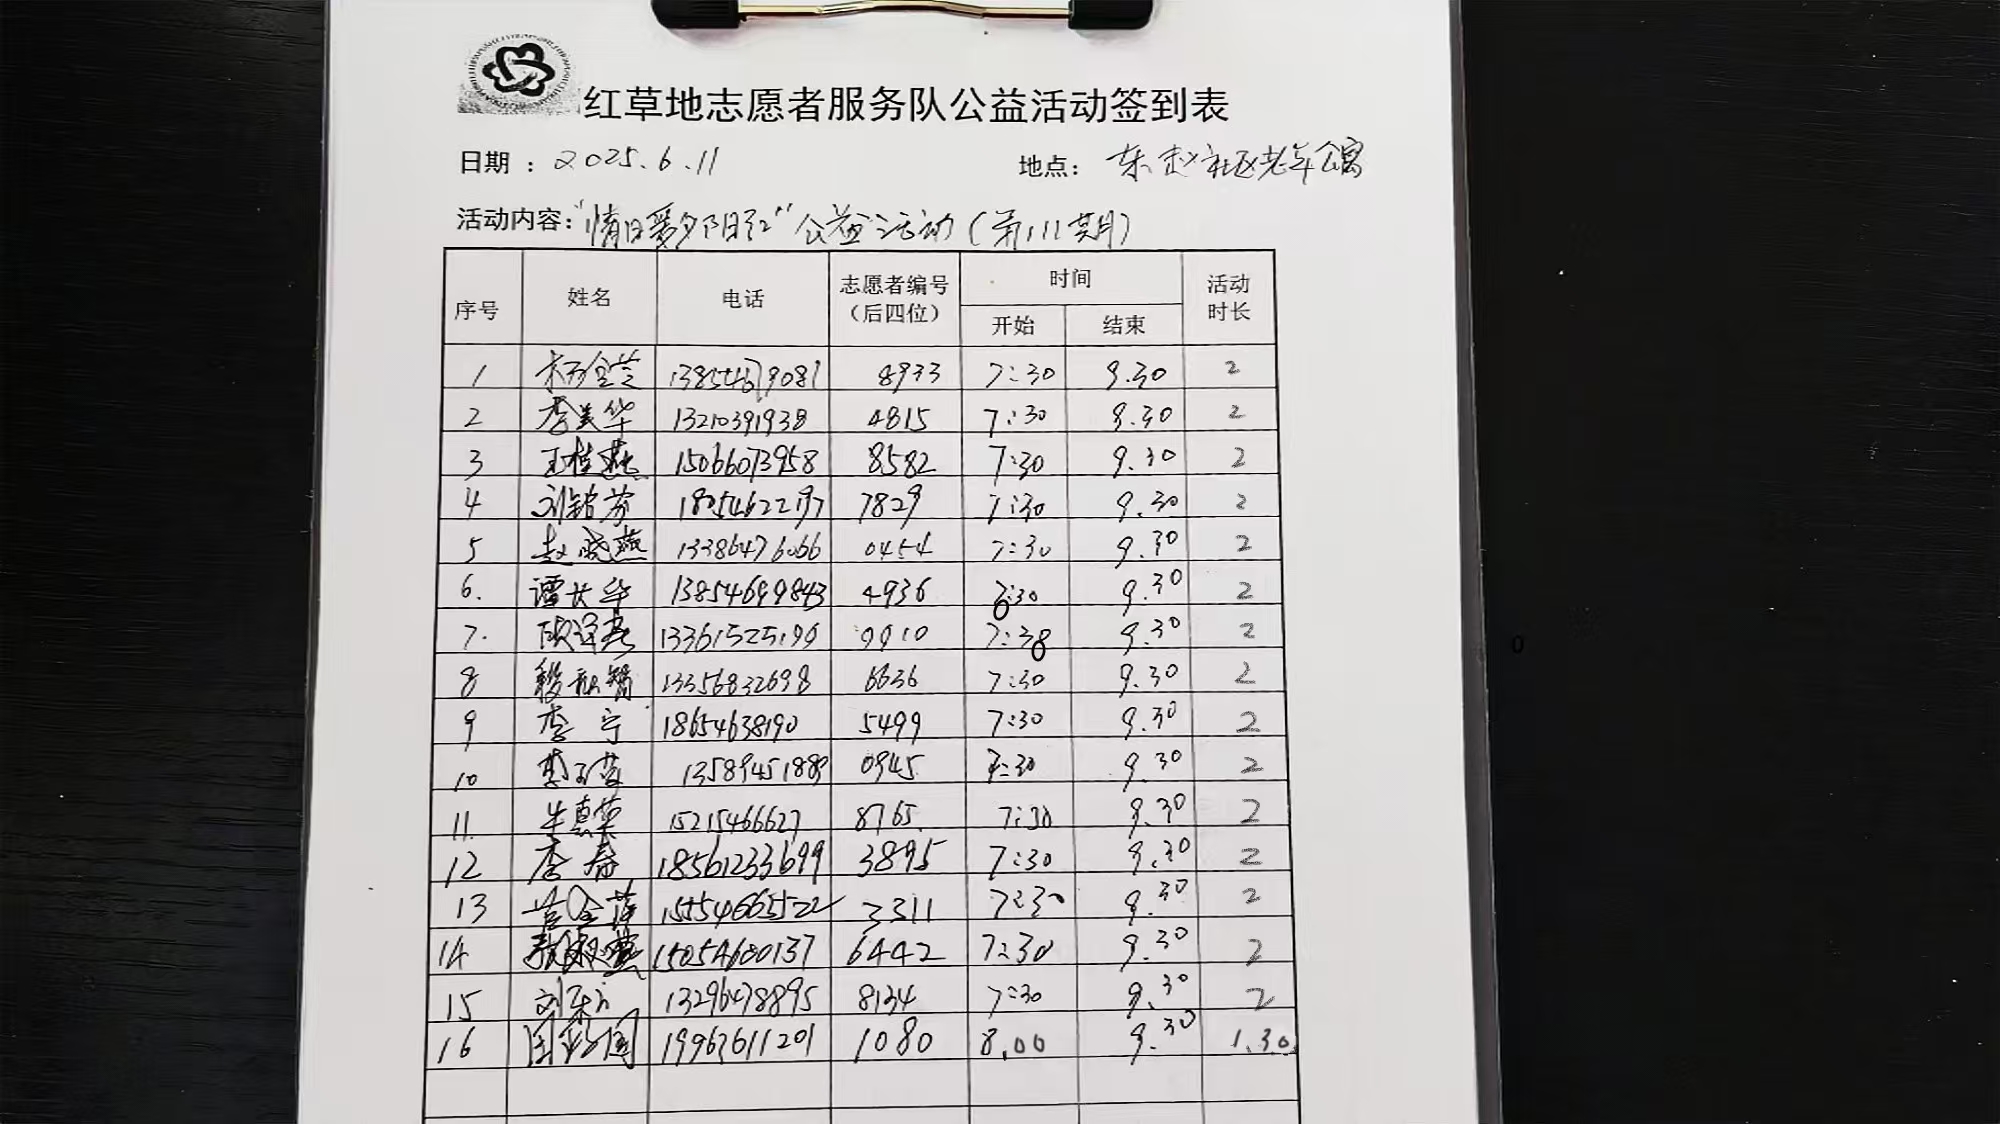 红草地志愿者服务队公益活动签到表
日期：2025.6.11 地点：东赵社区老年公寓
活动内容："情日爱夕阳红"公益活动(第111期)
序号 姓名 电话 志愿者编号（后四位） 时间 开始 结束 活动时长
1 杨金芝 13854679081 8933 7:30 9.30 2
2 李美华 13210391938 4815 7:30 9.30 2
3 王桂燕 15066073958 8582 7:30 9.30 2
4 刘 芬 7829 7:30 9.30 2
5 赵晓燕 13386476066 0454 7:30 9.30 2
6. 谭长华 13854699843 4936 7:30 9.30 2
7. 13361525196 9910 7:30 9.30 2
8 13356832698 6636 7:30 9.30 2
9 李宁 18654638190 5499 7:30 9.30 2
10 李 13589451889 0945 7:30 9.30 2
11. 牛惠荣 15215466627 8765 7:30 9.30 2
12 李春 18561233699 3895 7:30 9.30 2
13 金萍 15554665522 3311 7:30 9.30 2
14 15054680137 6442 7:30 9.30 2
15 刘 13296478895 8134 7:30 9.30 2
16 19963611201 1080 8.00 9.30 1.30